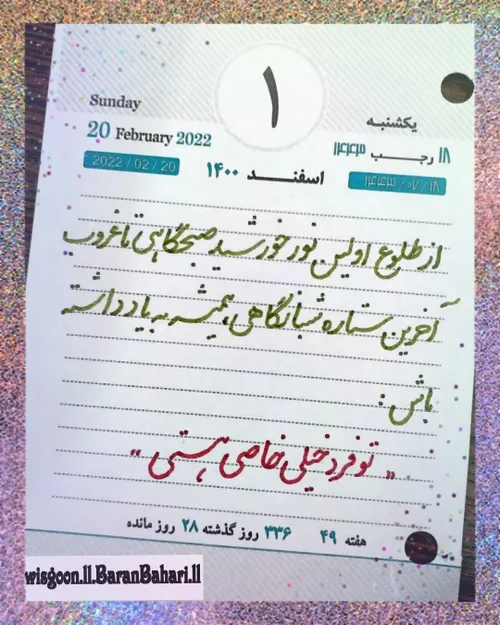 ۱
Sunday
یکشنبه
20 February 2022
۱۸ رجب ۱۴۴۳
2022 / 02 / 20
اسفند ۱۴۰۰
۱۴۴۳ / ۰۷ / ۱۸
از طلوع اولین نور خورشید صبحگاهی تا غروب
آخرین ستاره شبانگاهی، همیشه به یاد داشته
باش :
« تو فرد خیلی خاصی هستی »
هفته ۴۹ ۳۳۶ روز گذشته ۲۸ روز مانده
wisgoon.ll.BaranBahari.ll